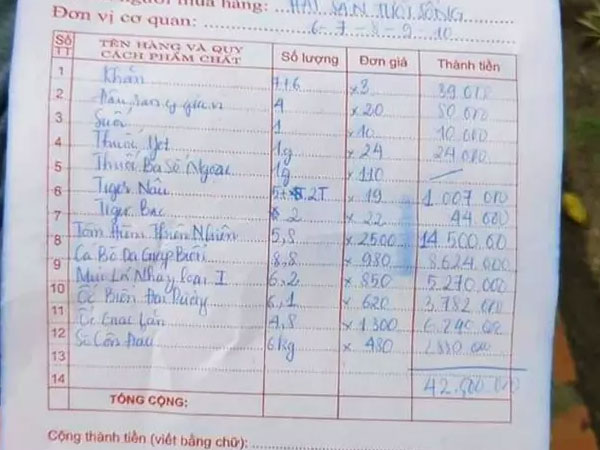 người mua hàng: HẢI SẢN TƯƠI SỐNG
Đơn vị cơ quan: 6-7-8-9-10
Số TT TÊN HÀNG VÀ QUY CÁCH PHẨM CHẤT Số lượng Đơn giá Thành tiền
1 Khăn 7+6 x3 39.000
2 4 x20 80.000
3 Suối 1 x10 10.000
4 Thuốc Jet 1g x24 24.000
5 Thuốc Ba Số Ngoại 1g x110
6 Tiger Nâu 2T x19 1.007.000
7 Tiger Bạc 2 x22 44.000
8 Tôm Hùm Thiên Nhiên 5,8 x2500 14.500.00
9 Cá Bò Da Giáp Biển 8,8 x980 8.624.000
10 Mực Lá Nháy loại I 6,2 x850 5.270.000
11 Ốc Biển Đại Dương 6,1 x620 3.782.000
12 Ốc 4,8 x1300 6.240.000
13 Sò Côn Đảo 6kg x480 2880.000
14 42.500.000
TỔNG CỘNG:
Cộng thành tiền (viết bằng chữ):